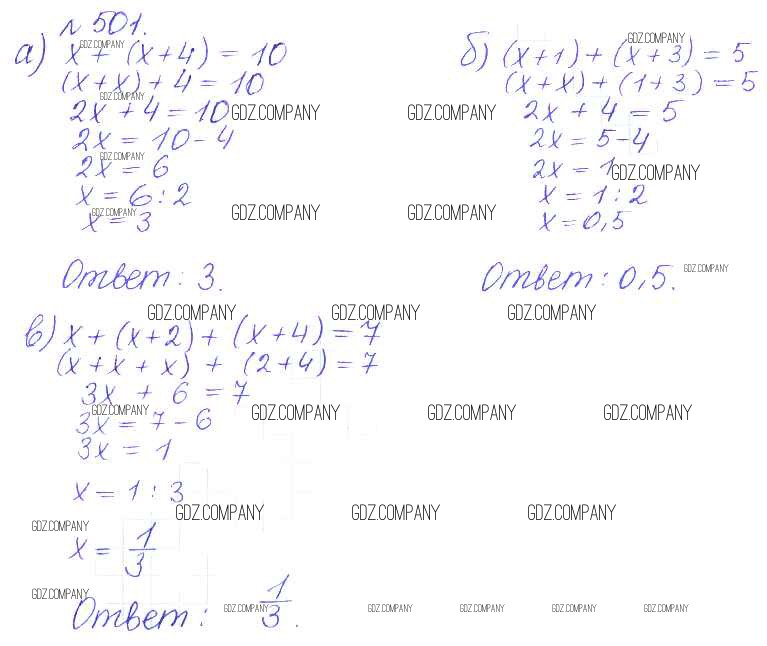 № 501.
а) x + (x+4) = 10
(x+x)+4 = 10
2x + 4 = 10
2x = 10-4
2x = 6
x = 6:2
x = 3
Ответ: 3.
б) (x+1)+(x+3) = 5
(x+x)+(1+3) = 5
2x + 4 = 5
2x = 5-4
2x = 1
x = 1:2
x = 0,5
Ответ: 0,5.
в) x + (x+2) + (x+4) = 7
(x+x+x) + (2+4) = 7
3x + 6 = 7
3x = 7-6
3x = 1
x = 1:3
x = 1/3
Ответ: 1/3.
GDZ.COMPANY
GDZ.COMPANY
GDZ.COMPANY
GDZ.COMPANY GDZ.COMPANY
GDZ.COMPANY
GDZ.COMPANY
GDZ.COMPANY GDZ.COMPANY GDZ.COMPANY
GDZ.COMPANY
GDZ.COMPANY GDZ.COMPANY GDZ.COMPANY
GDZ.COMPANY GDZ.COMPANY GDZ.COMPANY GDZ.COMPANY
GDZ.COMPANY GDZ.COMPANY GDZ.COMPANY
GDZ.COMPANY
GDZ.COMPANY
GDZ.COMPANY GDZ.COMPANY GDZ.COMPANY GDZ.COMPANY GDZ.COMPANY